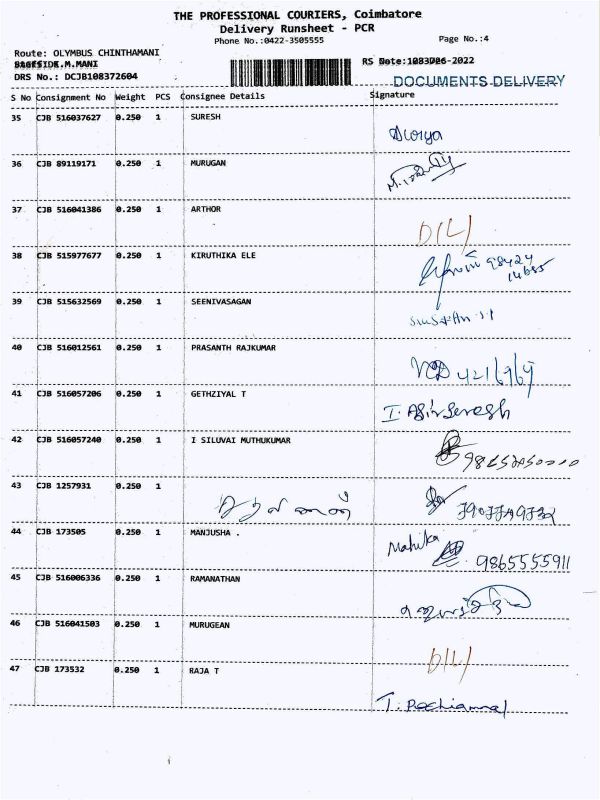 THE PROFESSIONAL COURIERS, Coimbatore
Delivery Runsheet - PCR
Phone No.:0422-3505555 Page No.:4
Route: OLYMBUS CHINTHAMANI
M.MANI RS Date:
DRS No.: DCJB108372604 DOCUMENTS DELIVERY
S No Consignment No Weight PCS Consignee Details Signature
35 CJB 516037627 0.250 1 SURESH
36 CJB 89119171 0.250 1 MURUGAN
37 CJB 516041386 0.250 1 ARTHOR
D(L)
38 CJB 515977677 0.250 1 KIRUTHIKA ELE
98424
14685
39 CJB 515632569 0.250 1 SEENIVASAGAN
40 CJB 516012561 0.250 1 PRASANTH RAJKUMAR
41 CJB 516057206 0.250 1 GETHZIYAL T
42 CJB 516057240 0.250 1 I SILUVAI MUTHUKUMAR
43 CJB 1257931 0.250 1
44 CJB 173505 0.250 1 MANJUSHA .
Mahika
9865555911
45 CJB 516006336 0.250 1 RAMANATHAN
46 CJB 516041503 0.250 1 MURUGEAN
D(L)
47 CJB 173532 0.250 1 RAJA T
T. Pachiammal